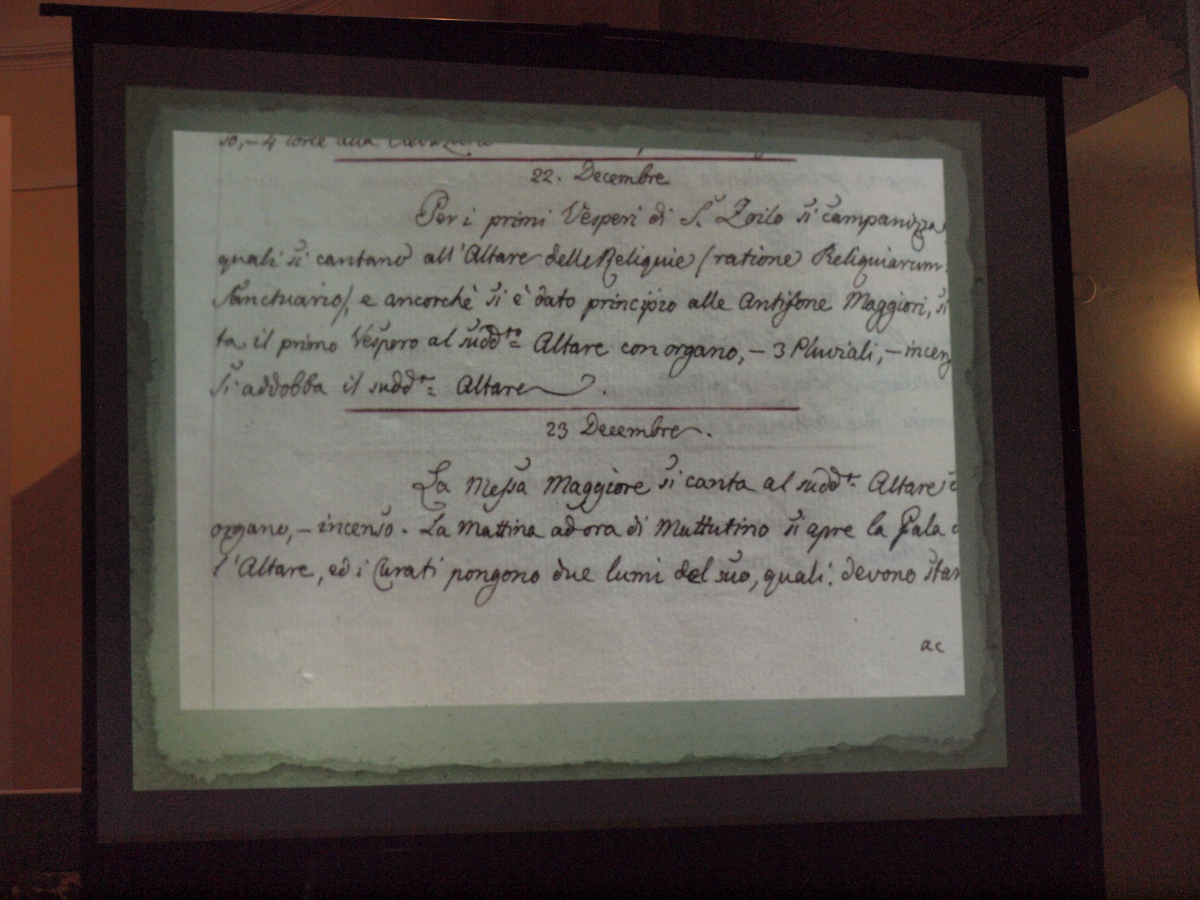 so, - 4 torce alla
22. Decembre
Per i primi Vesperi di S.ʳ Zoilo si campanizza,
quali si cantano all'Altare delle Reliquie (ratione Reliquiarum
Sanctuario), e ancorchè si è dato principio alle Antifone Maggiori, si
ta il primo Vespero al sudd.ᵗᵒ Altare con organo, - 3 Pluviali, - incen
Si addobba il sudd.ᵗᵒ Altare.
23 Decembre.
La Messa Maggiore si canta al sudd.ᵗᵒ Altare c
organo, - incenso. La Mattina ad ora di Muttutino si apre la Pala d
l'Altare, ed i Curati pongono due lumi del suo, quali: devono star
ac